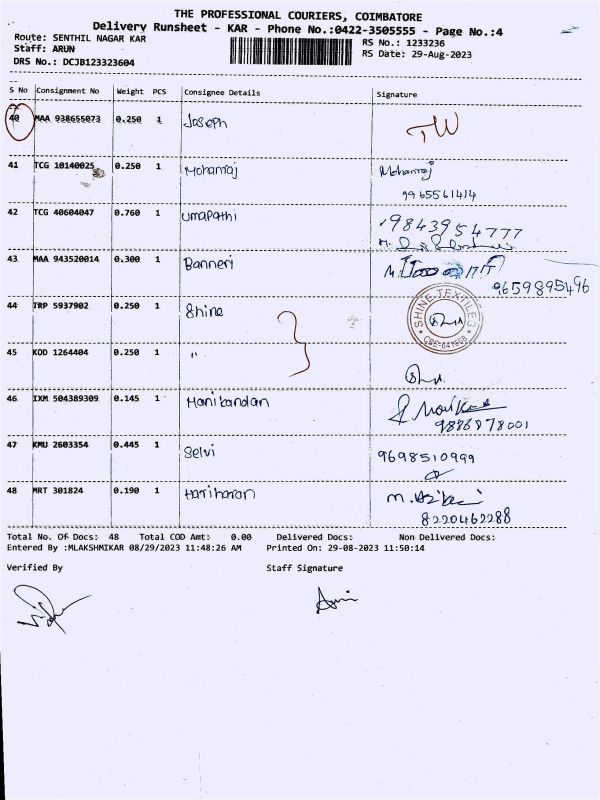 THE PROFESSIONAL COURIERS, COIMBATORE
Delivery Runsheet - KAR - Phone No.:0422-3505555 - Page No.:4
Route: SENTHIL NAGAR KAR RS No.: 1233236
Staff: ARUN RS Date: 29-Aug-2023
DRS No.: DCJB123323604
S No Consignment No Weight PCS Consignee Details Signature
40 MAA 938655073 0.250 1 Joseph TW
41 TCG 10140025 0.250 1 Mohanraj Mohanraj
9965561414
42 TCG 40604047 0.760 1 Umapathi 9843954777
43 MAA 943520014 0.300 1 Banneri
9659895496
44 TRP 5937902 0.250 1 Shine SHINE TEXTILES
45 KOD 1264404 0.250 1 "
46 IXM 504389309 0.145 1 Manikandan
9886878001
47 KMU 2603354 0.445 1 Selvi 9698510999
48 MRT 301824 0.190 1 Hariharan
8220462288
Total No. Of Docs: 48 Total COD Amt: 0.00 Delivered Docs: Non Delivered Docs:
Entered By :MLAKSHMIKAR 08/29/2023 11:48:26 AM Printed On: 29-08-2023 11:50:14
Verified By Staff Signature